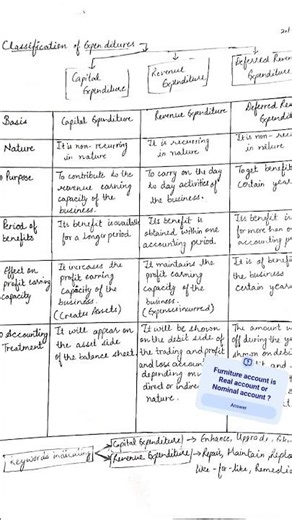 Classification of Expenditures
Capital Expenditure
Revenue Expenditure
Deferred Reven
Expenditure
Basis
Capital Expenditure
Revenue Expenditure
Deferred Re
Expendit
Nature
It is non-recurring
in nature
It is recurring
in nature
It is non-re
in nature
Purpose
To contribute to the
revenue earning
capacity of the
business.
To carry on the day
to day activities of
the business.
To get benefi
certain year
Period of
benefits
Its benefit is available
for a longer period.
Its benefit is
obtained within one
accounting period.
Its benefit i
for more than o
accounting p
Effect on
profit earning
capacity
It increases the
profit earning
capacity of the
business.
(Creates Assets)
It maintains the
profit earning
capacity of the
business.
(Expense incurred)
It is of benefi
the business
certain years
Accounting
Treatment
It will appear on
the asset side
of the balance sheet.
It will be shown
on the debit side of
the trading and profit
and loss account
depending on
direct or indire
nature.
The amount w
off during the y
shown on debit
Furniture account is
Real account or
Nominal account ?
Answer
Keywords indicating
Capital Expenditure → Enhance, Upgrade,
Revenue Expenditure → Repair, Maintain, Repla
like-for-like, Remedia